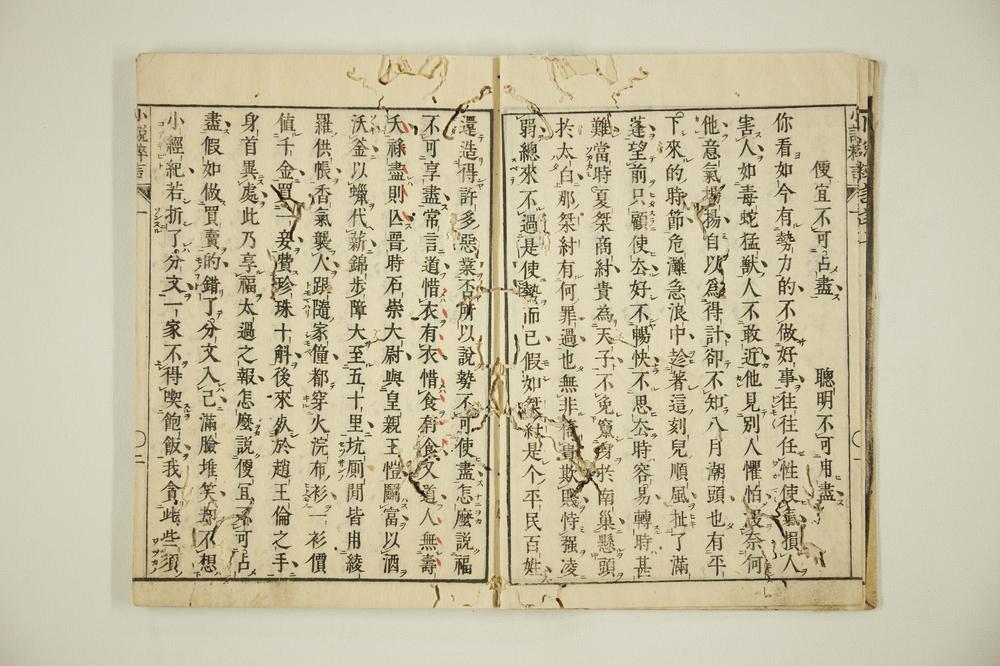 便宜不可占盡　聰明不可用盡
你看如今有勢力的不做好事往往任性使氣損人
害人如毒蛇猛獸人不敢近他見別人懼怕沒奈何
他意氣揚揚自以為得計卻不知八月潮頭也有平
下來的時節危灘急浪中趁著這刻兒順風扯了滿
蓬望前只顧使去好不暢快不思去時容易轉時甚
難當時夏桀商紂貴為天子不免竄身於南巢懸頭
於太白那桀紂有何罪過也無非倚貴欺賤恃强凌
弱總來不過是使勢而已假如桀紂是个平民百姓
還造得許多惡業否所以說勢不可使盡怎麼說福
不可享盡常言道惜衣有衣惜食有食又道人無壽
夭祿盡則亾晋時石崇大尉與皇親王愷鬭富以酒
沃釜以蠟代薪錦步障大至五十里坑厠間皆用綾
羅供帳香氣襲人跟隨家僮都穿火浣布衫一衫價
值千金買一妾費珍珠十斛後來欲於趙王倫之手
身首異處此乃享福太過之報怎麼說便宜不可占
盡假如做買賣的錯了分文入己滿臉堆笑却不想
小經紀若折了分文一家不得喫飽飯我貪此些須
小說粹言
一
〇二